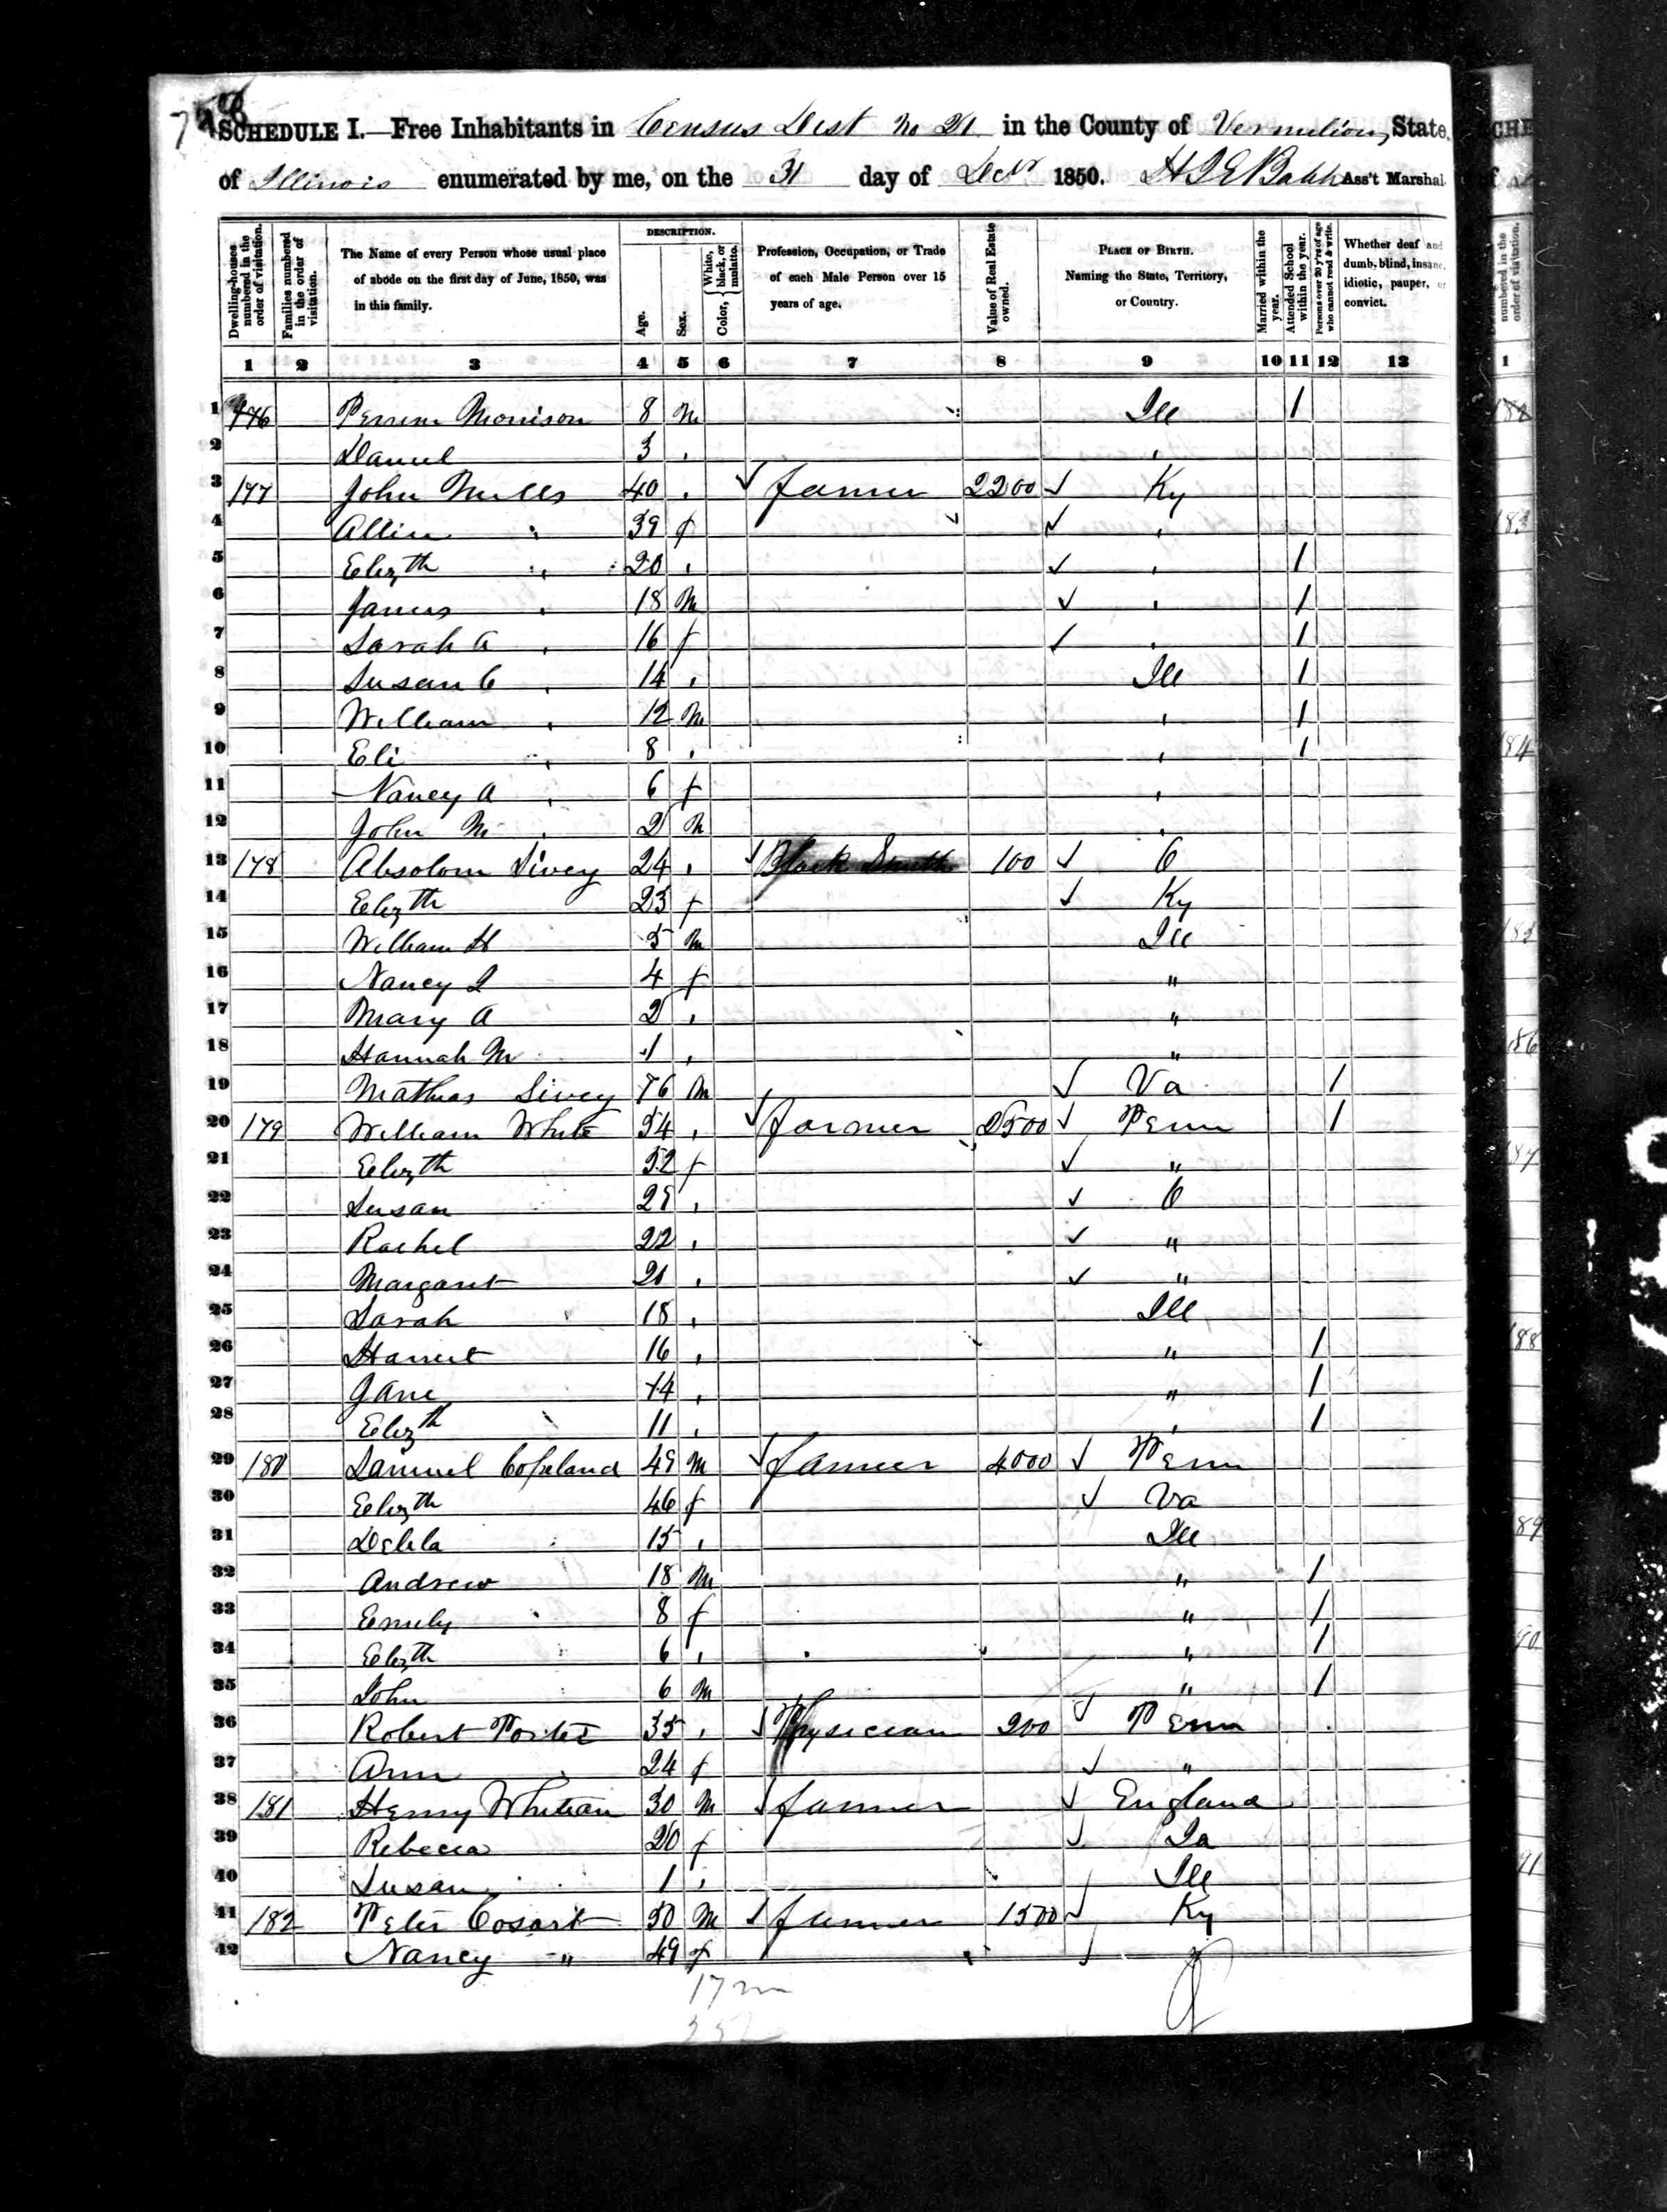 SCHEDULE I.—Free Inhabitants in Census Dist No 21 in the County of Vermilion, State
of Illinois enumerated by me, on the 31 day of Decr 1850. Ass't Marshal
Dwelling-houses numbered in the order of visitation.
Families numbered in the order of visitation.
The Name of every Person whose usual place of abode on the first day of June, 1850, was in this family.
DESCRIPTION.
Age.
Sex.
Color, { White, black, or mulatto.
Profession, Occupation, or Trade of each Male Person over 15 years of age.
Value of Real Estate owned.
PLACE OF BIRTH. Naming the State, Territory, or Country.
Married within the year.
Attended School within the year.
Persons over 20 y'rs of age who cannot read & write.
Whether deaf and dumb, blind, insane, idiotic, pauper, or convict.
1 2 3 4 5 6 7 8 9 10 11 12 13
1 176 Morrison 8 M Ill 1
2 Daniel 3 ,
3 177 John Mills 40 , farmer 2200 Ky
4 39 f ,
5 Elizth 20 , , 1
6 James 18 M , 1
7 Sarah A 16 f , 1
8 Susan C 14 , Ill 1
9 William 12 M , 1
10 Eli 8 , , 1
11 Nancy A 6 f ,
12 John M 2 M ,
13 178 Absolom Livey 24 , Black Smith 100 O
14 Elizth 23 f Ky
15 William H 5 M Ill
16 Nancy J 4 f "
17 Mary A 2 , "
18 Hannah M 1 , "
19 Mathias Livey 76 M Va 1
20 179 William White 54 , farmer 2500 Tenn 1
21 Elizth 52 f "
22 Susan , O
23 Rachel 22 , "
24 Margaret , "
25 Sarah 18 , Ill
26 Harriet 16 , " 1
27 Jane 14 , " 1
28 Elizth 11 , , 1
29 180 Samuel Copeland 49 M farmer 4000 Tenn
30 Elizth 46 f Va
31 15 , Ill
32 Andrew 18 M " 1
33 Emily 8 f " 1
34 Elizth 6 , " 1
35 John 6 M " 1
36 Robert Porter 35 , Physician 200
37 Ann 24 f "
38 181 Henry 30 M farmer England
39 Rebecca 20 f Ia
40 Susan 1 , Ill
41 182 Peter Cosart 50 M farmer 1500 Ky
42 Nancy " 49 f
17 m